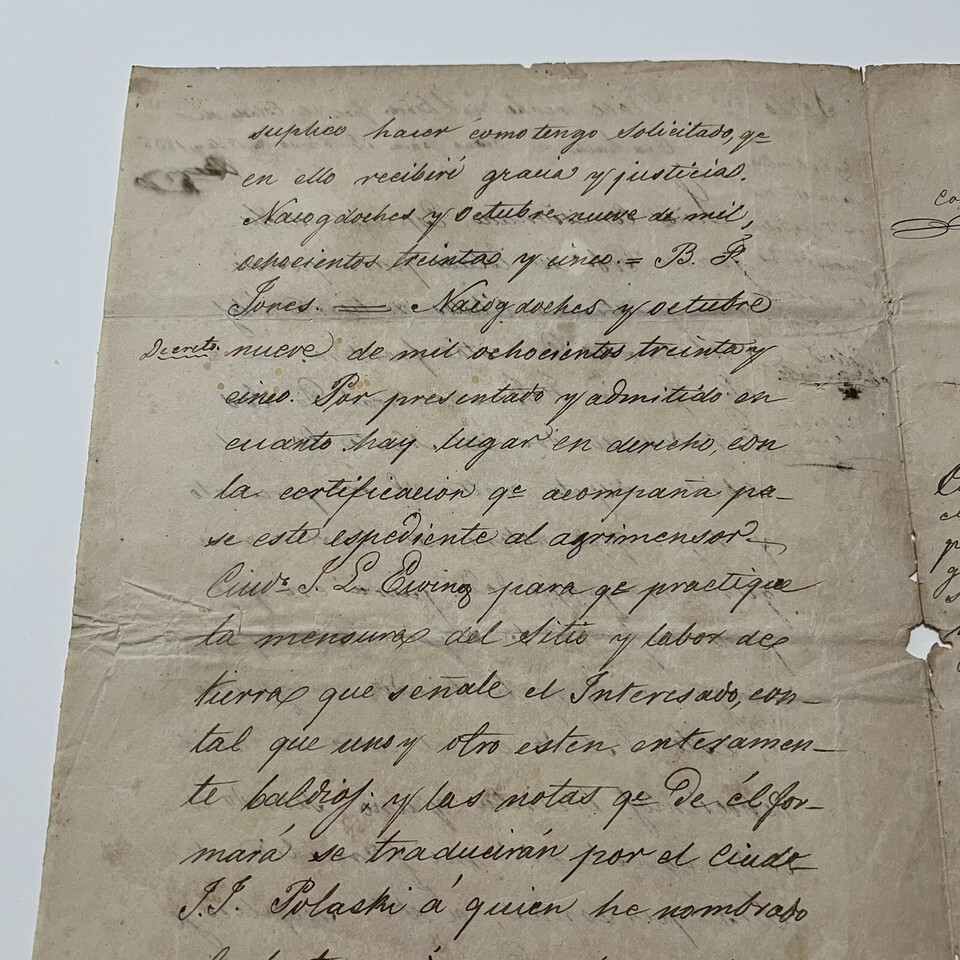 suplico hacer como tengo solicitado, qe
en ello recibiré gracia y justicia.
Nacogdoches y octubre nueve de mil,
ochocientos treintas y cinco. = B. F.
Jones. = Nacogdoches y octubre
Decreto. nueve de mil ochocientos treinta y
cinco. Por presentado y admitido en
cuanto hay lugar en derecho, con
la certificacion qe acompaña pa-
se este espediente al agrimensor
Ciudo J. L. Ewing para qe practique
la mensura del sitio y labor de
tierra que señale el Interesado, con-
tal que uno y otro esten enteramen-
te baldios; y las notas qe de él for-
mará se traducirán por el Ciudo
J. J. Polaski á quien he nombrado